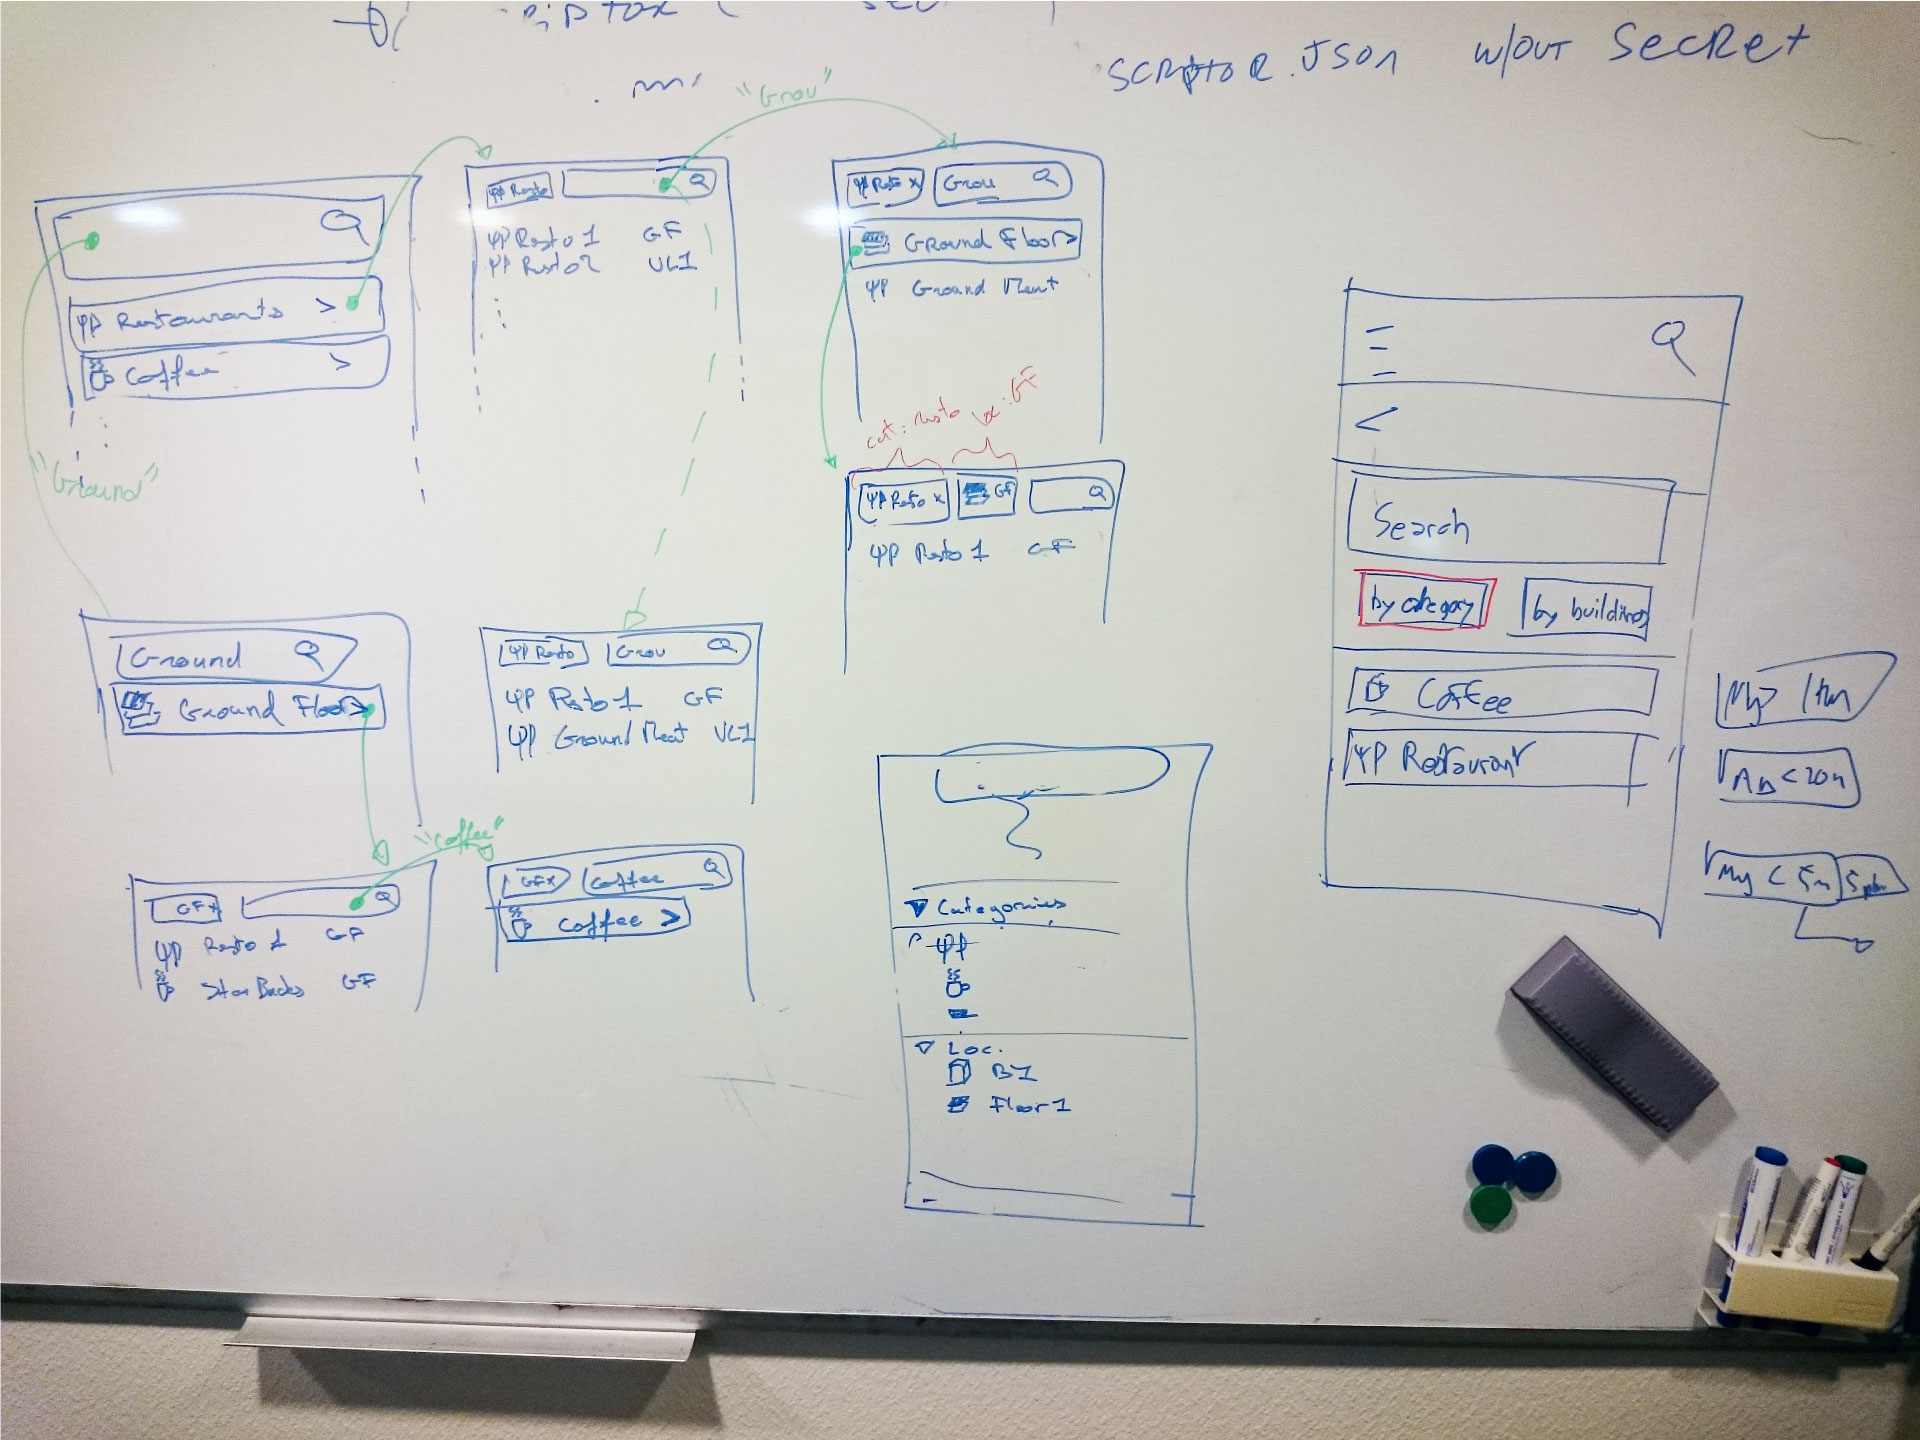 SCRIPTOR.JSON w/out Secret
"Grou"
Restaurants >
Coffee >
"Ground"
Resto
Resto 1 GF
Resto 2 UL1
Resto x Grou
Ground Floor >
Ground Meat
cat: Resto loc: GF
Resto x GF
Resto 1 GF
Ground
Ground Floor >
Resto Grou
Resto 1 GF
Ground Meat UL1
"Coffee"
GF x
Resto 1 GF
StarBucks GF
GF x Coffee
Coffee >
Categories
Loc.
B1
Floor 1
<
Search
by category by buildings
Coffee
Restaurant
My
< 20m
My < 5m